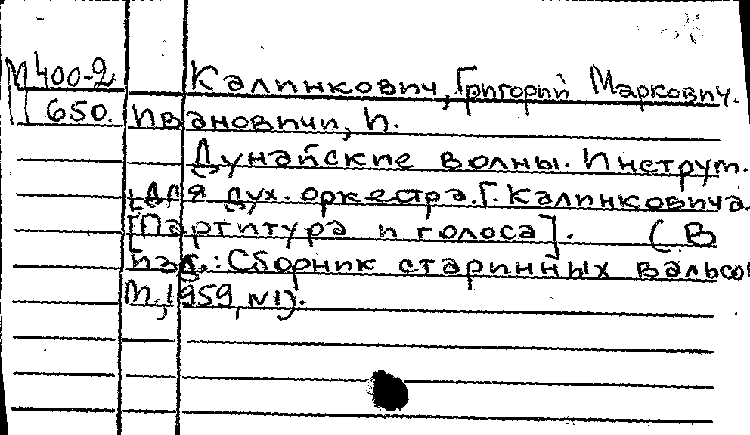 М400-2 Калинкович, Григорий Маркович.
650. Ивановичи, И.
Дунайские волны. Инструм.
для дух. оркестра Г. Калинковича.
[Партитура и голоса]. (В
изд.: Сборник старинных вальсов
М, 1959, №1).